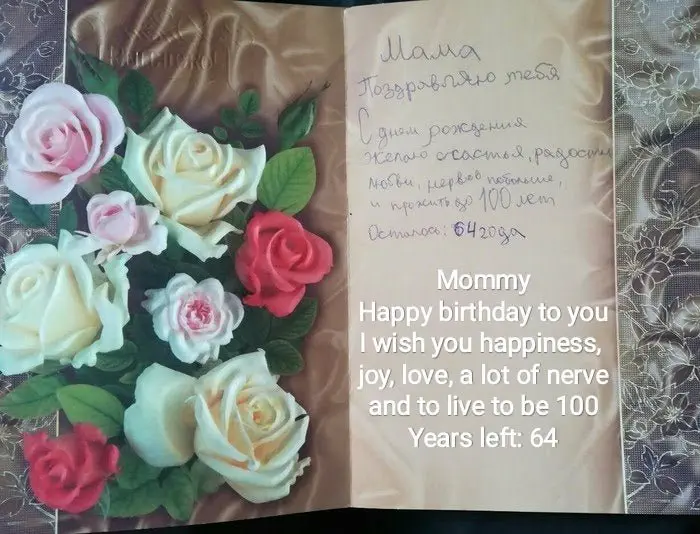 Мама
Поздравляю тебя
С днем рождения
желаю счастья, радости
любви, нервов побольше,
и прожить до 100 лет
Осталось: 64 года
Mommy
Happy birthday to you
I wish you happiness,
joy, love, a lot of nerve
and to live to be 100
Years left: 64